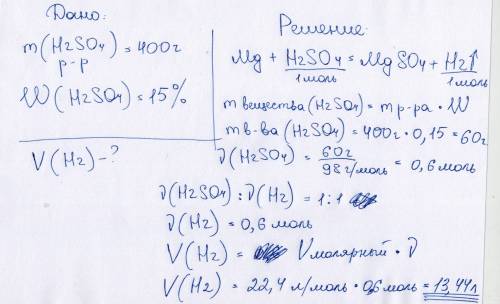 Дано:
m(H2SO4) = 400г
р-р
W(H2SO4) = 15%
V(H2) - ?
Решение:
Mg + H2SO4 = MgSO4 + H2↑
1моль 1моль
m вещества (H2SO4) = m р-ра · W
m в-ва (H2SO4) = 400г · 0,15 = 60г
ν(H2SO4) = 60г / 98 г/моль = 0,6 моль
ν(H2SO4) : ν(H2) = 1:1
ν(H2) = 0,6 моль
V(H2) = V молярный · ν
V(H2) = 22,4 л/моль · 0,6 моль = 13,44л